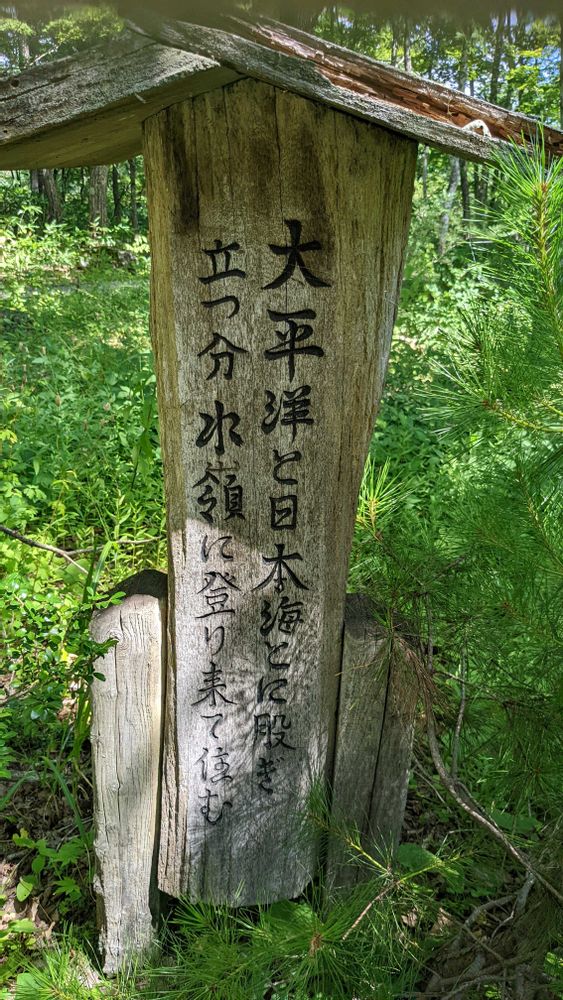 大平洋と日本海とに股ぎ
立つ分水嶺に登り来て住む